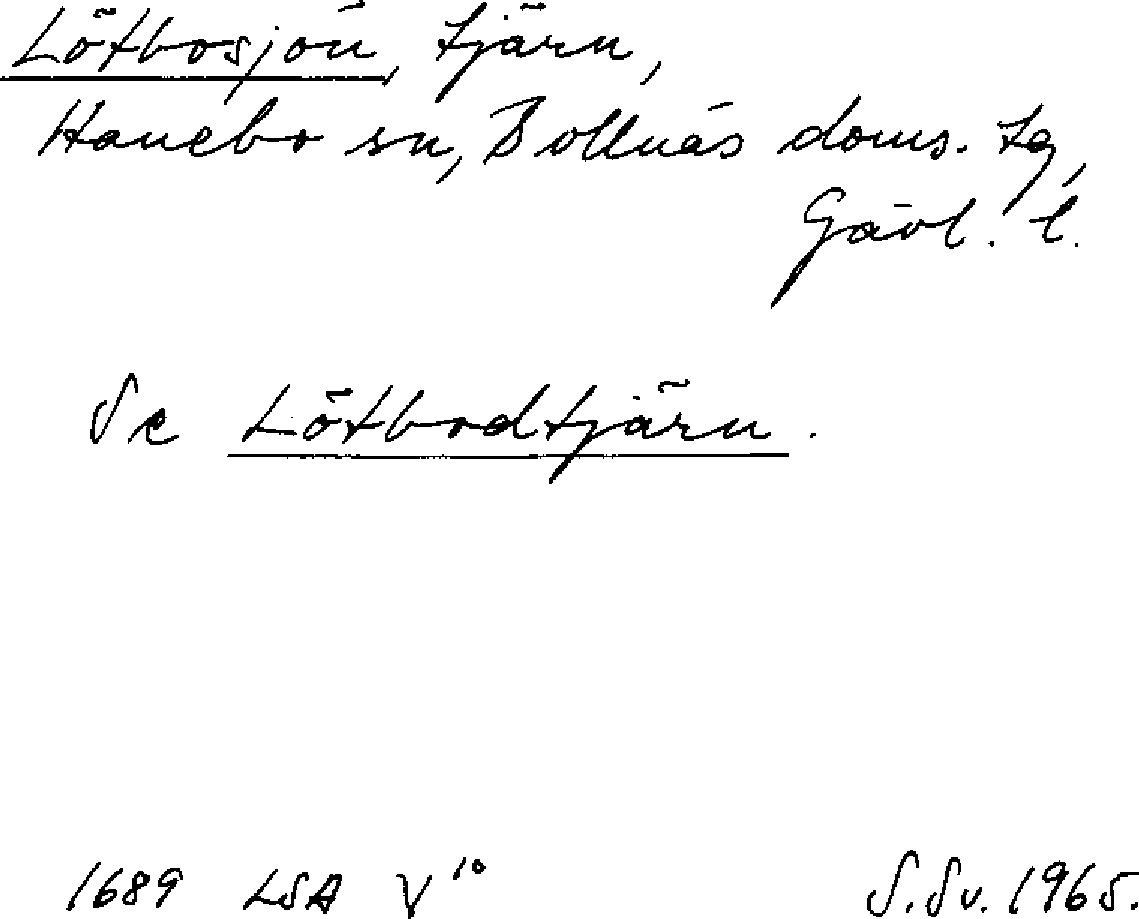 Lötbosjön, tjärn,
Hanebo sn, Bollnäs doms. tg,
Gävl. l.
Se Lötbodtjärn.
1689 LSA V¹⁰ S.Sv. 1965.